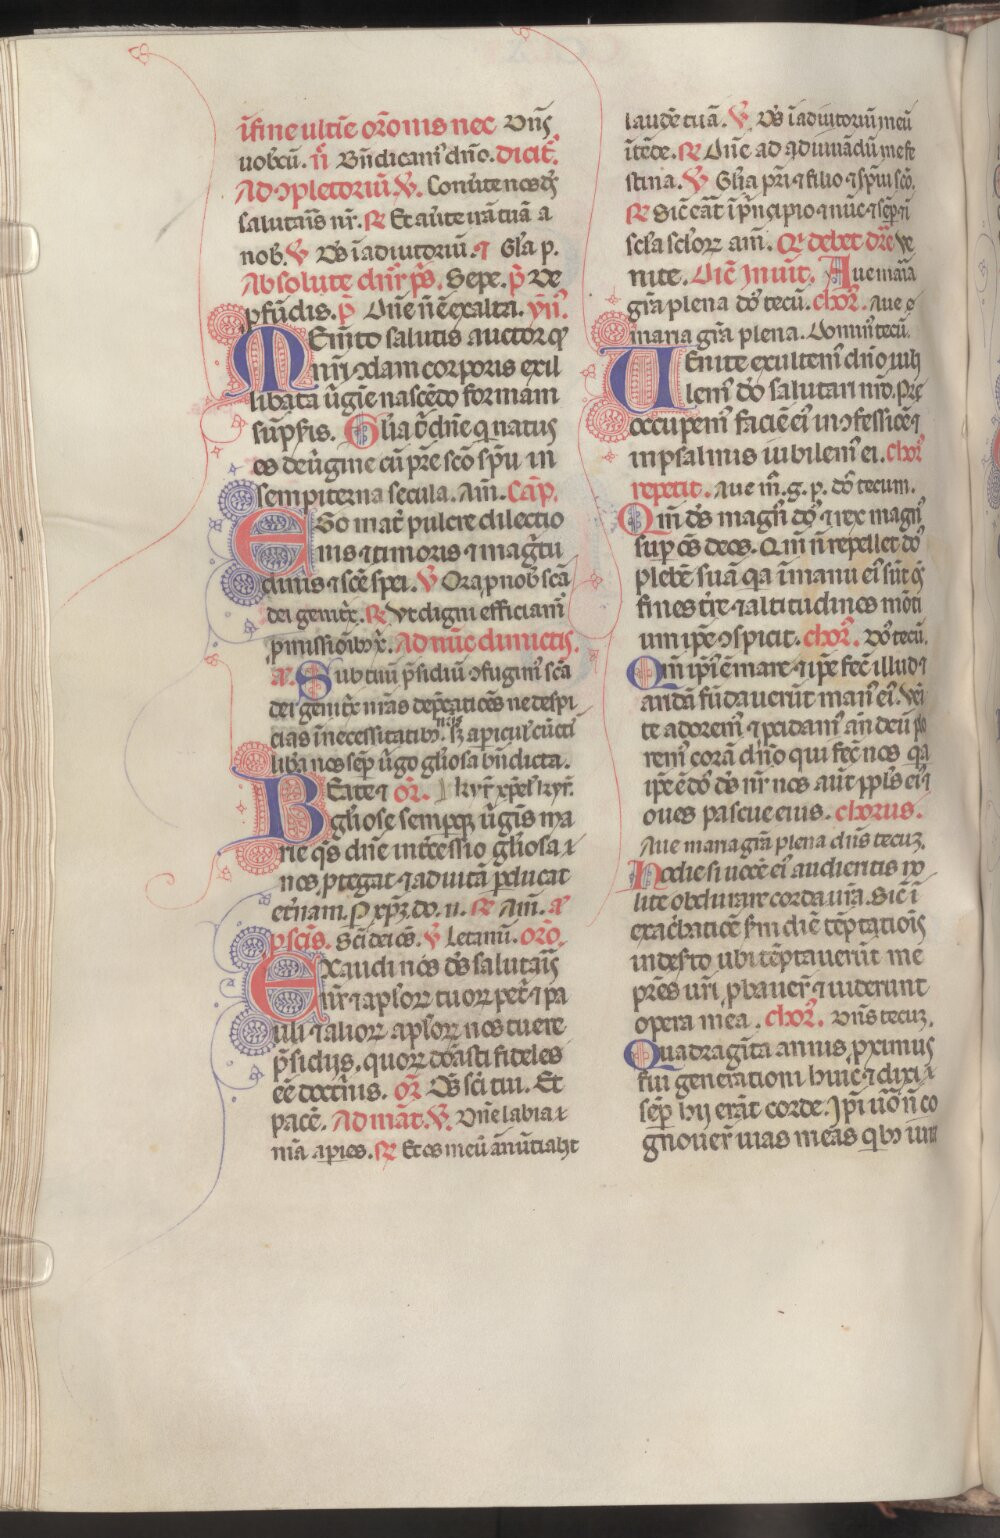 ī fine ultīe orōnis nec Dn̄s
uobcū. n̄ Bn̄dicamꝰ dn̄o. dicit̄.
Ad ↄpletoriū ℣. Conūte nos dˢ
salutaīs nr̄. ℟ Et aūte irā tuā a
nob̄. ℣ Ds̄ ī adiutoriū. ⁊ Glīa p.
Sepe. p̄ De
ꝓfūdis. p̄ Dn̄e n̄ ē exalta. ym̄.
Emīto salutis auctor qͥ
nr̄i qͦdam corporis exil
libata ūgīe nascēdo formam
sūpsˢis. Glīa t̄ dn̄e qͥ natus
es de ūgine cū pr̄e scō spū in
sempiterna secula. Am̄. Cap̄.
Ego mat̄ pulcre dilectio
nis ⁊ timoris ⁊ magītu
dinis ⁊ scē spei. ℣ Ora ꝓ nob̄ scā
dei genitͥx. ℟ Vt digni efficiamꝰ
ꝓmissiōibꝰ x̄. Ad nūc dimictis.
a. Sub tuū p̄sidiū ↄfugimꝰ scā
dei genitͥx nr̄as dep̄catiōes ne despi
cias ī necessitatibꝰ. nr̄is sꝫ a pericul̓ cūcti
libera nos semp̄ ūgo glīosa bn̄dicta.
Beate ⁊ or̄. kyr̄ xp̄el̓ kyr̄.
glīose semꝑqꝫ ūgīs ma
rie qs̄ dn̄e int̄cessio glīosa ⁊
nos ꝓtegat ⁊ ad uitā ꝑducat
et̄nam. P̄ xp̄ꝫ. do. n. ℟ Am̄. a
pscīs. Scī dei oēs. ℣ Letamī. orō.
Exaudi nos ds̄ salutaīs
nr̄ ⁊ aplōꝝ tuoꝝ pet̄ ⁊ pa
uli ⁊ alioꝝ aplōꝝ nos tuere
p̄sidiis. quoꝝ dōasti fideles
eē doct̄nis. or̄ Oēs scī tui. Et
pacē. Ad māt. ℣. Dn̄e labia ⁊
mīa apies. ℟ Et os meū ānūtiabit
laudē tuā. ℣. Ds̄ ī adiutoriū meū
ītēde. ℟ Dn̄e ad adiuuādū me fe
stina. ℣ Glīa pr̄i ⁊ filio ⁊ spūi scō.
℟ Sic̄ erāt ī pͥncipio ⁊ nūc ⁊ semp̄ ⁊ ī
scl̄a scl̄oꝝ am̄. Qͬ debet dīe Ve
nite. Dic̄ Inuīt. Aue maīa
grā plena dōˢ tecū. chorꝰ. Aue
maria grā plena. Dominꝰ tecū.
Uenite exultemꝰ dn̄o iubi
lemꝰ dō salutari nr̄o. Pre
occupemꝰ faciē eiꝰ in ↄfessiōe ⁊
in psalmis iubilemꝰ ei. chorꝰ
repetit. Aue m̄. g. p. dō tecum.
Qm̄ ds̄ magnꝰ dōˢ ⁊ rex magnꝰ
suꝑ oēs deos. Qm̄ n̄ repellet dōˢ
plebē suā qͥa ī manu eiꝰ sūt oēs
fines t̄re ⁊ altitudines mōti
um ip̄e ↄspicit. chorꝰ. Dōˢ tecū.
Qm̄ ip̄iꝰ ē mare ⁊ ip̄e fec̄ illud ⁊
aridā fūdauerūt manꝰ eiꝰ. Veni
te adoremꝰ ⁊ ꝓcidamꝰ an̄ deū plo
remꝰ corā dn̄o qui fec̄ nos qͥa
ip̄e ē dōˢ ds̄ nr̄ nos aūt ppl̄s eiꝰ ⁊
oues pascue eius. chorus.
Aue maria grā plena dn̄s tecuꝫ.
Hodie si uocē eiꝰ audieritis no
lite obdurare corda ur̄a. Sic̄ ī
exac̄batiōe sm̄ diē tēptatiōis
in desˢto ubi tēptauerūt me
pr̄es ur̄i ꝓbauer̄ ⁊ uiderunt
opera mea. chorꝰ. Dn̄s tecuꝫ.
Quadragīta annis ꝓximus
fui generationi huic ⁊ dixi
semp̄ hii erāt corde. Ip̄i uō n̄ co
gnouer̄ uias meas qͥbꝰ iura